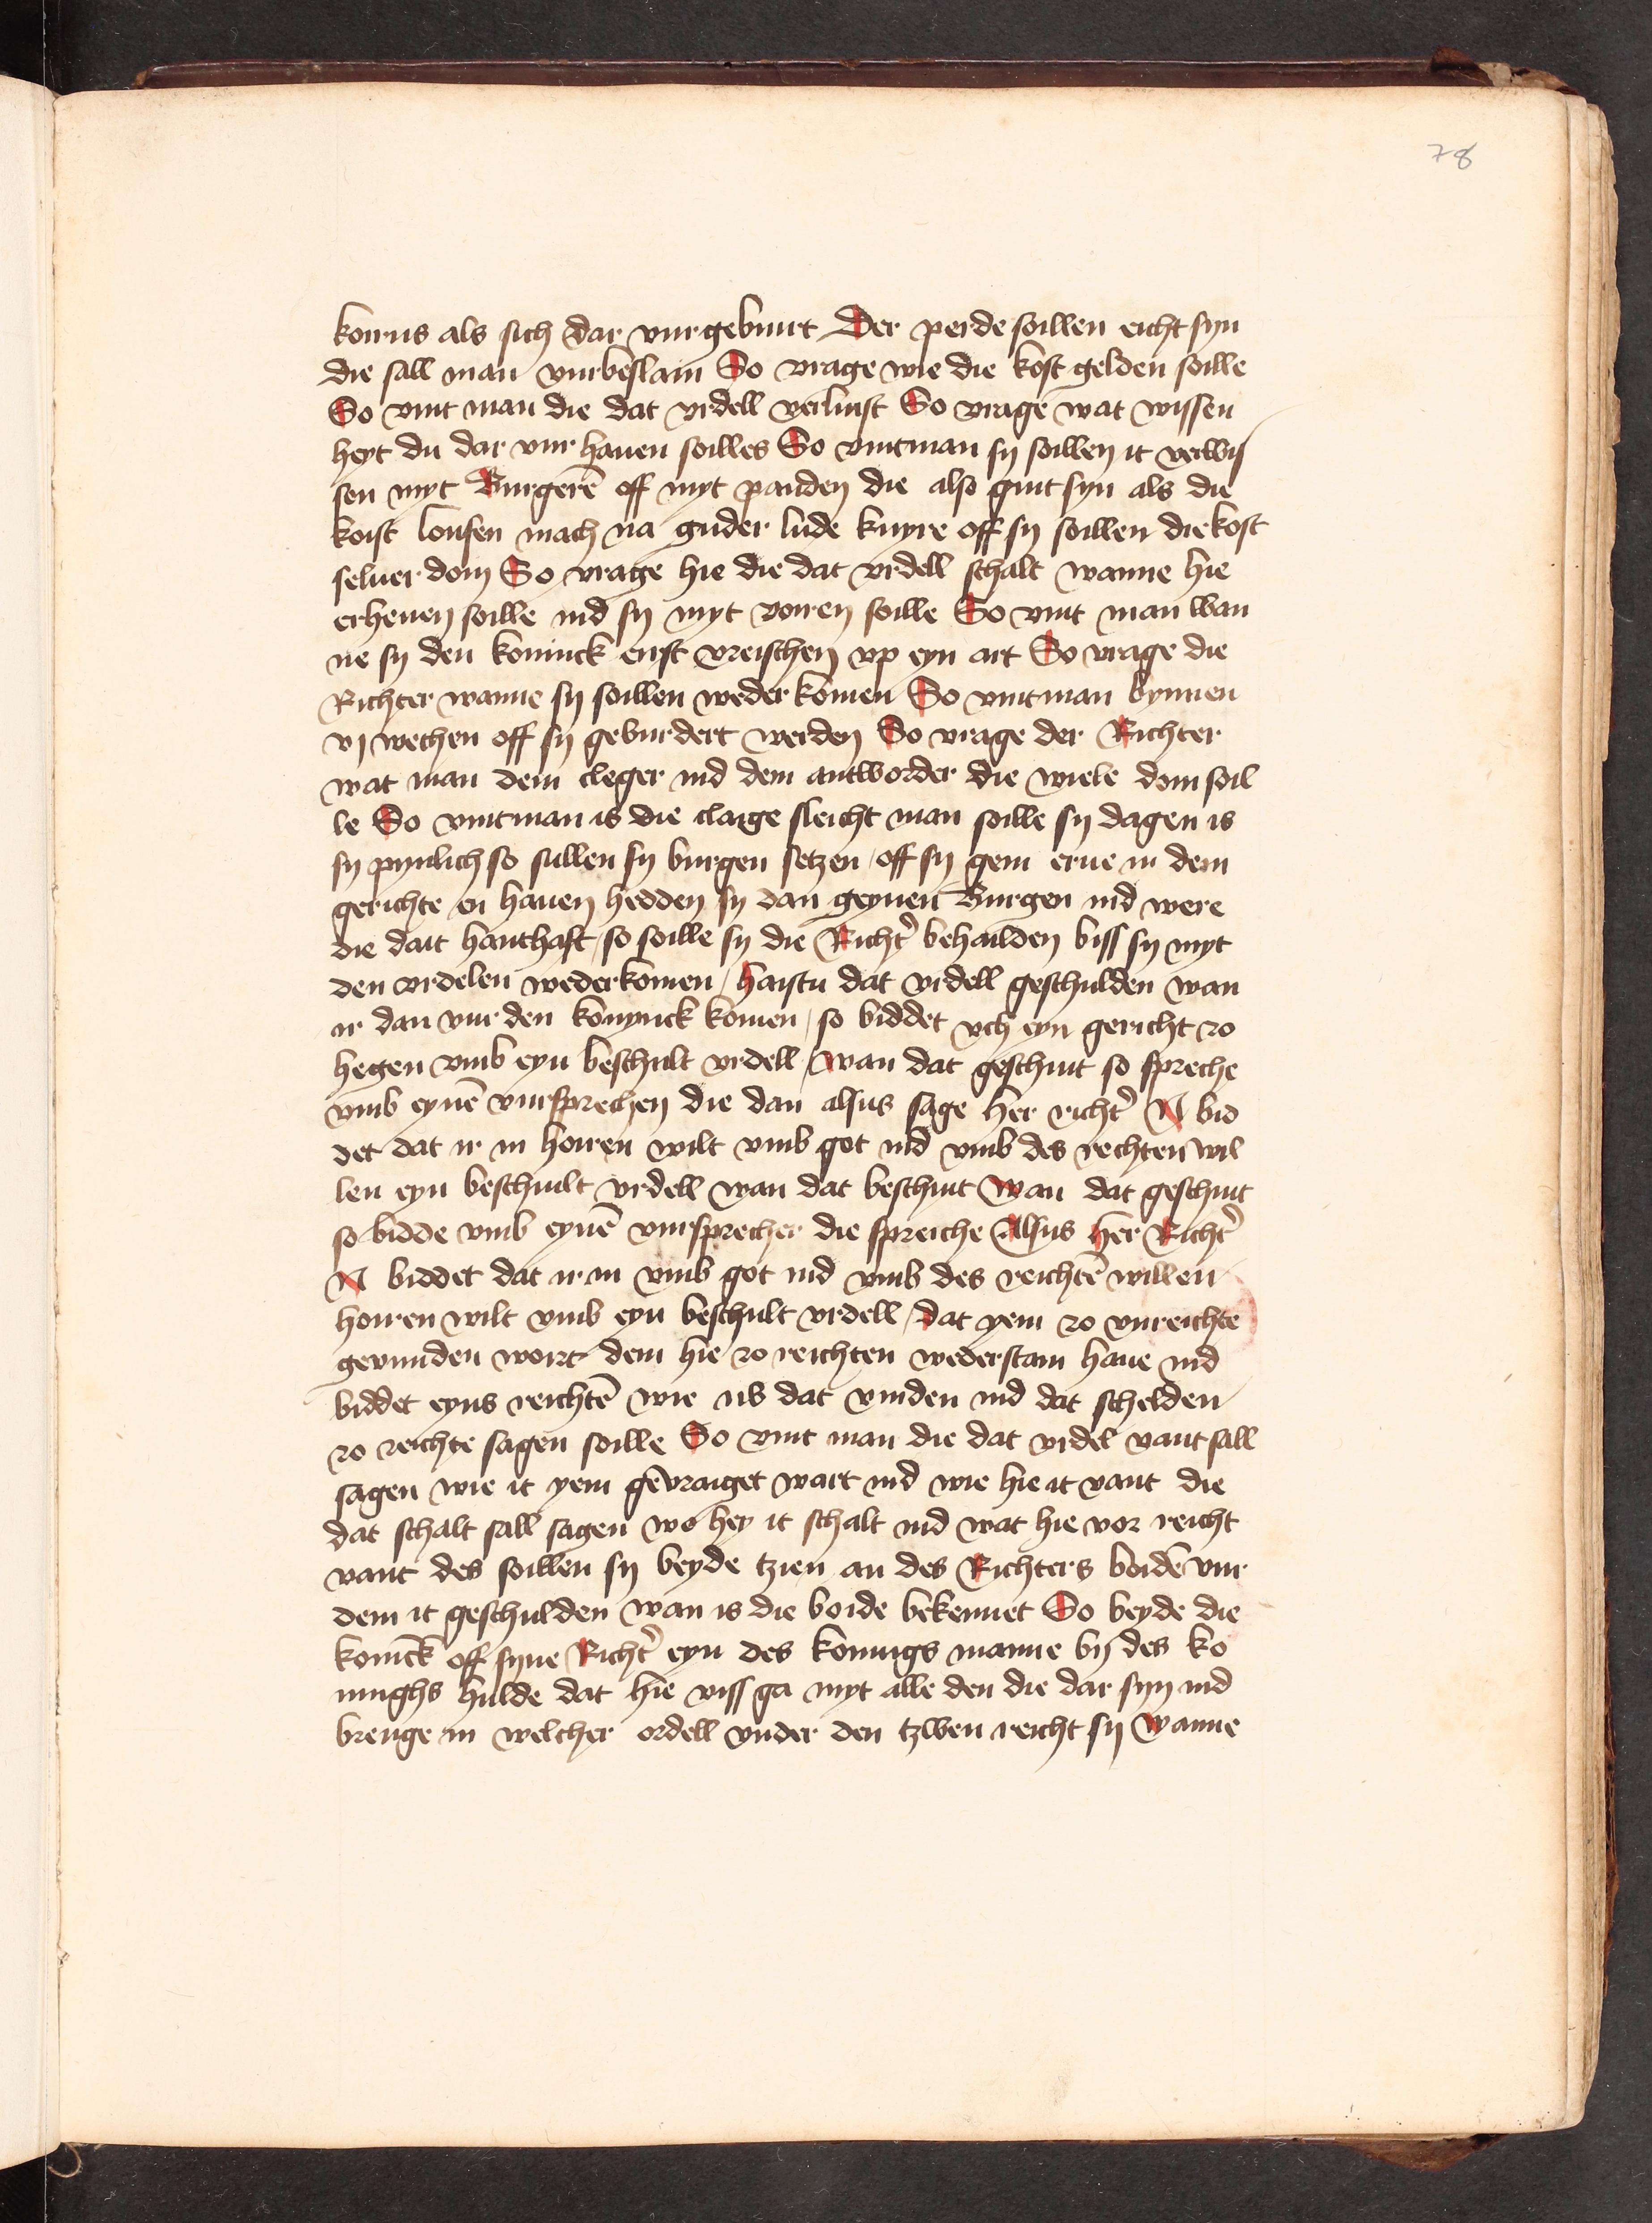 78
korns als sich dar vur gebuirt Der perde soillen eicht syn
die sall man vurbeslain So vrage wie die kost gelden soille
So vint man die dat vrdell verluist So vrage wat wissen
heyt du dar vur hauen soilles So vintman sy soillen it verwis
sen myt Burgerē off myt panden die also guit syn als die
koist loufen mach na guder lude kuyre off sy soillen die kost
seluer doin So vrage hie die dat vrdell schalt wanne hie
erheuen soille ind sy myt voiren soille So vint man wan
ne sy den koninck eirst vreischen vp eyn art So vrage die
Richter wanne sy soillen weder komen So vintman bynnen
vj wechen off sy gevurdert werden So vrage der Richter
wat man dem cleger ind dem antworder die wiele doin soil
le So vintman is die claige sleicht man soille sy dagen is
sy pynlich so sullen sy burgen setzen / off sy gein erue in dem
gerichte en hauen hedden sy dan geynen Burgen ind were
die dait hanthaft / so soille sy die Richt' behailden biss sy myt
den vrdelen wederkomen / haistu dat vrdell geschulden wan
ir dan vur den konynck komen / so biddet vch eyn gericht zo
hegen vmb eyn beschult vrdell / wan dat geschiut so spreche
vmb eynē vursprechen die dan alsus sage her richt' N bid
det dat ir in hoiren wilt vmb got ind vmb des rechten wil
len eyn beschuilt vrdell wan dat beschiut wan dat geschiut
so bidde vmb eynē vursprecher die spreiche Alsus her Richt'
N biddet dat ir in vmb got ind vmb des reichtē willen
hoiren wilt vmb eyn beschult vrdell / dat yem zo vnreichte
gevunden wort dem hie zo reichten wederstain haue ind
biddet eyns reichtē wie us dat vinden ind dat schelden
zo reichte sagen soille So vint man die dat vrdel vant sall
sagen wie it yem gevraiget wart ind wie hie it vant die
dat schalt sall sagen wo hey it schalt ind wat hie vor reicht
vant des soillen sy beyde tzien an des Richters boidē vur
dem it geschulden wan is die boide bekennet So beyde die
konick off syne Richt' eyn des konigs manne by des ko
ninghs hulde dat hie viss ga myt alle den die dar syn ind
brenge in welcher ordell vnder den tzwen reicht sy wanne